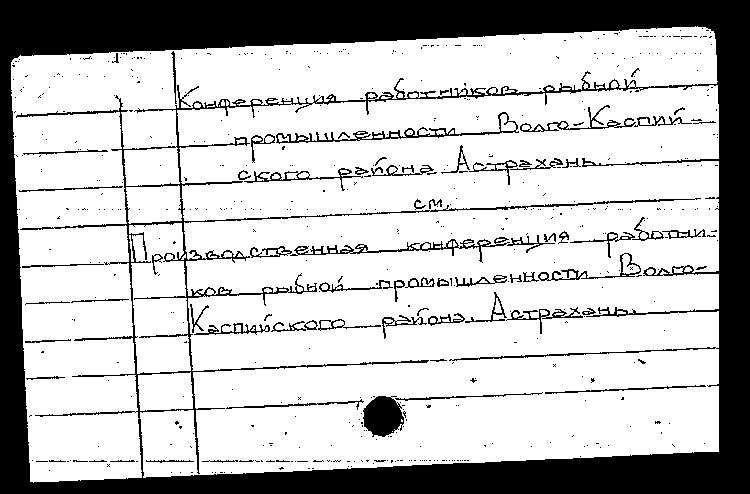 Конференция работников рыбной
промышленности Волго-Каспий-
ского района. Астрахань.
см.
Производственная конференция работни-
ков рыбной промышленности Волго-
Каспийского района. Астрахань.